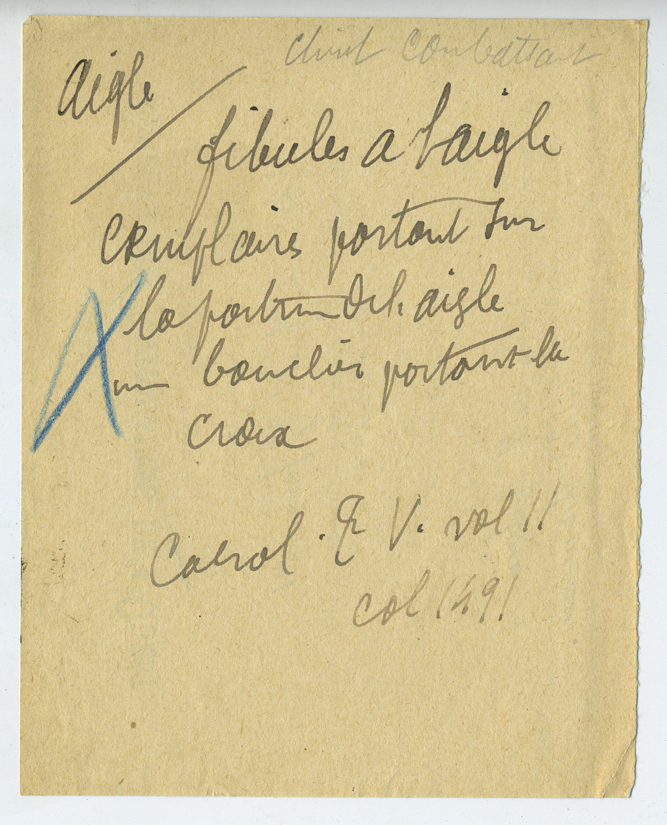 Christ combattant
Aigle
fibules a l'aigle
exemplaires portant sur
la poitrine de l'aigle
un bouclier portant la
croix
Cabrol. T V. vol II
col 1491